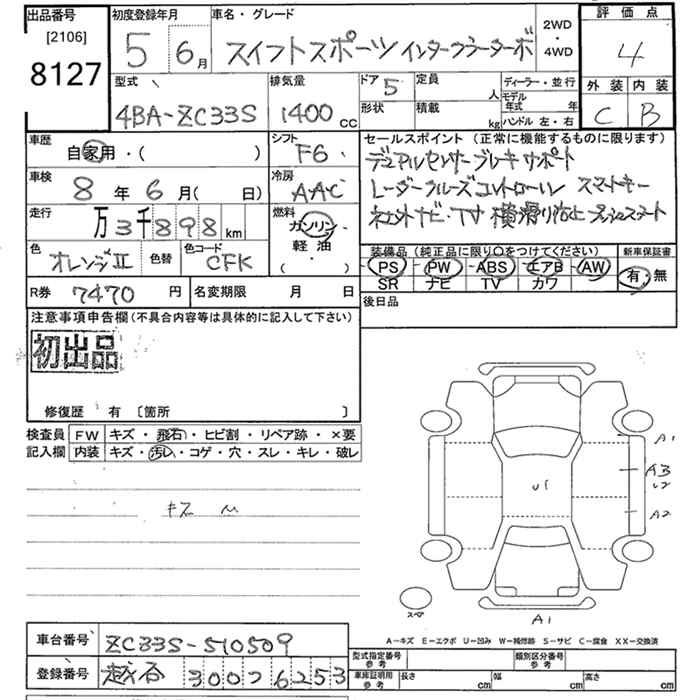 出品番号
[2106]
8127
初度登録年月
5
6月
車名・グレード
スイフトスポーツ インタークーラーターボ
2WD
・
4WD
評価点
4
外装 内装
C B
型式
4BA-ZC33S
排気量
1400 CC
ドア 5
形状
定員
人
積載
kg
ディーラー・並行
モデル年式 年
ハンドル 左・右
車歴
自家用・( )
シフト
F6
車検
8年6月( 日)
冷房
AAC
走行
万3千898km
燃料
ガソリン
軽油
( )
色
オレンジⅡ
色替
色コード
CFK
R券 7470円
名変期限 月 日
セールスポイント (正常に機能するものに限ります)
デュアルセンサーブレーキサポート
レーダークルーズコントロール スマートキー
社外ナビ・TV 横滑り防止 プッシュスタート
装備品 (純正品に限り○をつけてください)
PS PW ABS エアB AW
SR ナビ TV カワ
新車保証書
有・無
後日品
注意事項申告欄(不具合内容等は具体的に記入して下さい)
初出品
修復歴 有〔箇所 〕
検査員
記入欄
FW キズ・飛石・ヒビ割・リペア跡・×要
内装 キズ・汚レ・コゲ・穴・スレ・キレ・破レ
キズ
A1
AB
U2
U1
A2
スペア
A1
A-キズ E-エクボ U-凹み W-補修跡 S-サビ C-腐食 XX-交換済
車台番号 ZC33S-510509
登録番号 越谷 300 そ 6253
型式指定番号
参考
類別区分番号
参考
車庫証明用
参考
長さ cm
幅 cm
高さ cm